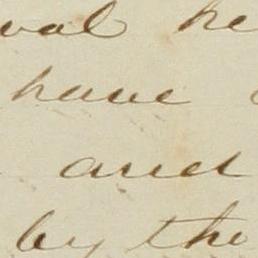 val he
have
and
by the